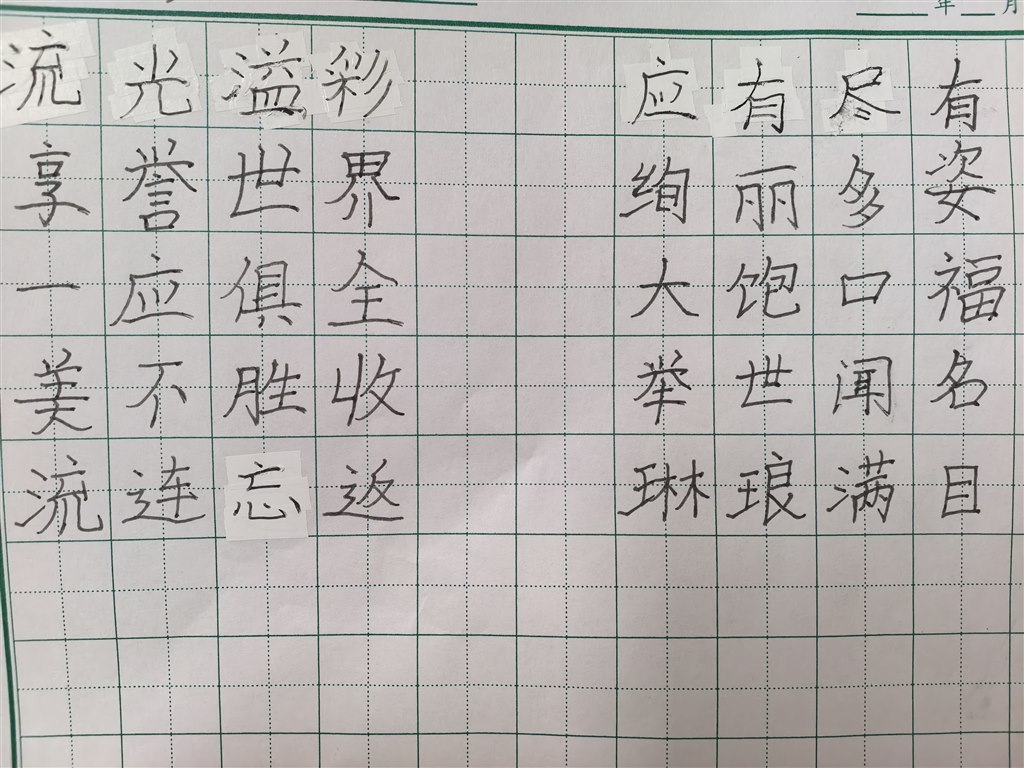 年 月
流光溢彩 应有尽有
享誉世界 绚丽多姿
一应俱全 大饱口福
美不胜收 举世闻名
流连忘返 琳琅满目